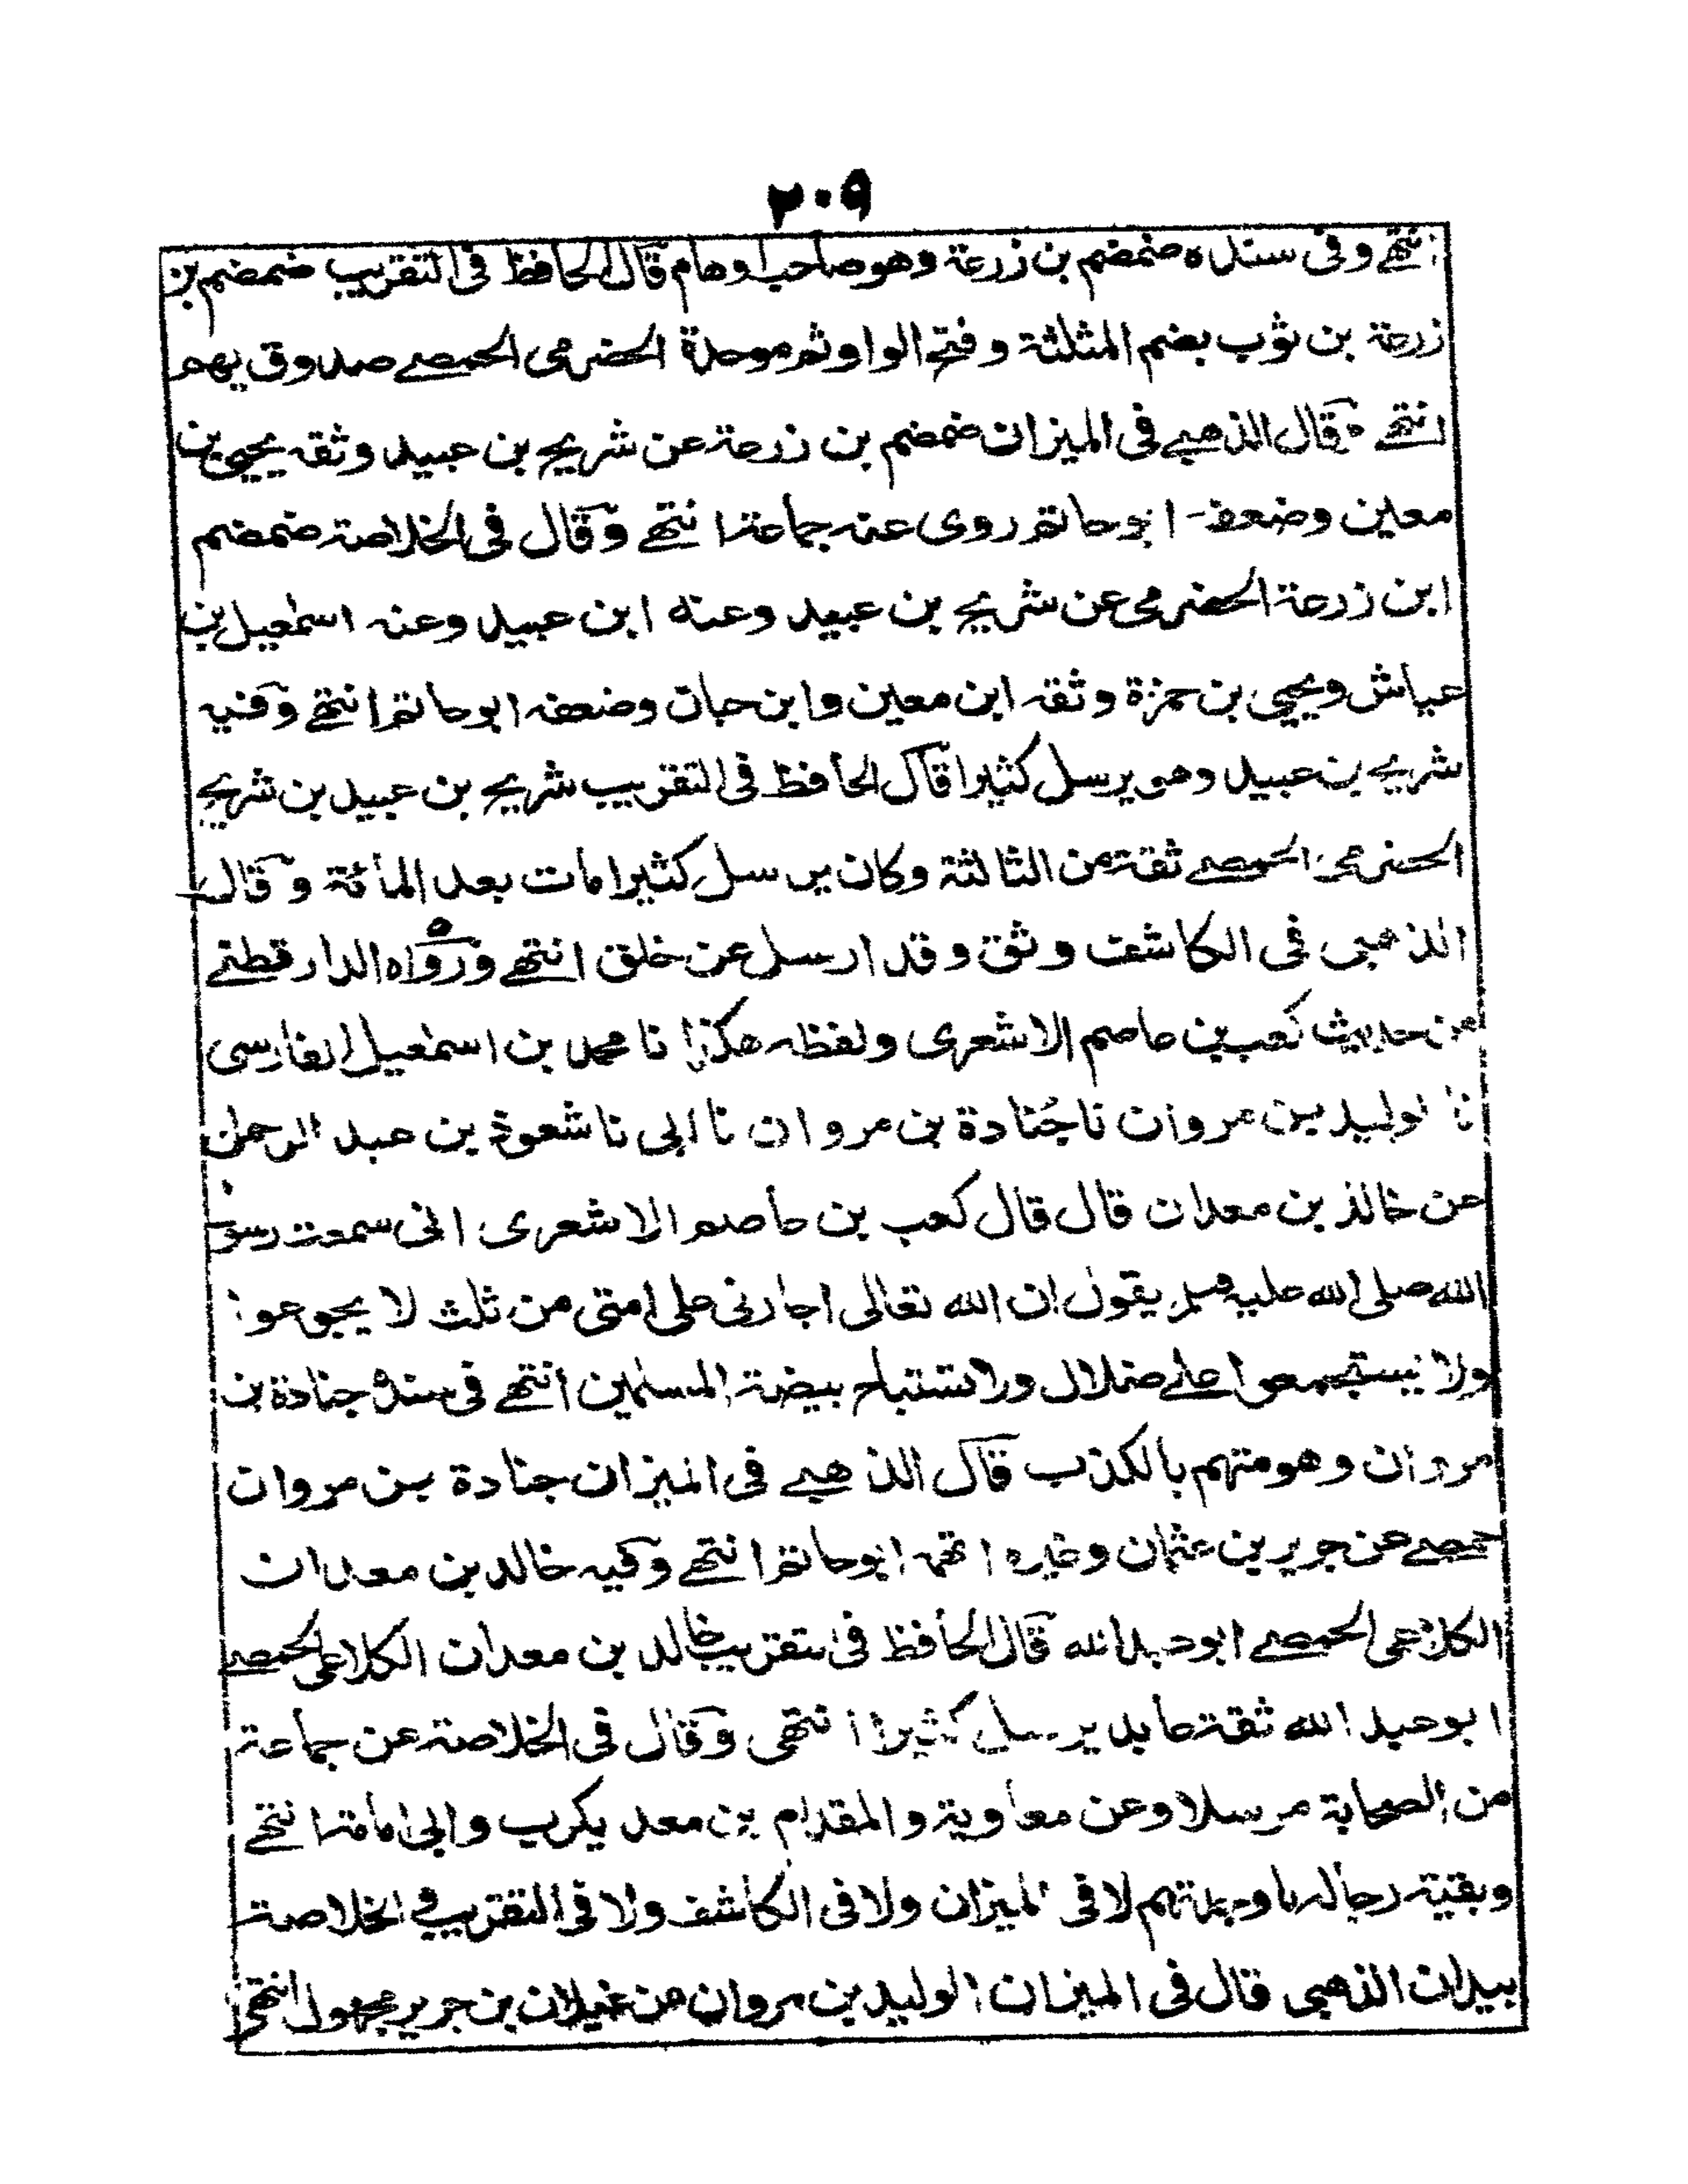 ٢٠٩
انتهے وفى سنده ضمضم بن زرعة وهو صاحب اوهام قال الحافظ فى التقريب ضمضم بن
زرعة بن ثوب بضم المثلثة وفتح الواو ثم موحدة الحضرمى الحمصے صدوق يهم
انتهے وقال الذهبے فى الميزان ضمضم بن زرعة عن شريح بن عبيد وثقه يحيى بن
معين وضعفه ابو حاتم روى عنه جماعة انتهے وقال فى الخلاصة ضمضم
ابن زرعة الحضرمى عن شريح بن عبيد وعنه ابن عبيد وعنه اسمٰعيل بن
عياش ويحيى بن حمزة وثقه ابن معين وابن حبان وضعفه ابو حاتم انتهے وفيه
شريح بن عبيد وهو يرسل كثيرا قال الحافظ فى التقريب شريح بن عبيد بن شريح
الحضرمى الحمصے ثقة من الثالثة وكان يرسل كثيرا مات بعد المائة وقال
الذهبى فى الكاشف وثق وقد ارسل عن خلق انتهے ورواه الدارقطنے
من حديث كعب بن عاصم الاشعرى ولفظه هكذا نا محمد بن اسمٰعيل الفارسى
نا الوليد بن مروان نا جُنادة بن مروان نا ابى نا شعوذ بن عبد الرحمٰن
عن خالد بن معدان قال قال كعب بن عاصم الاشعرى انى سمعت رسول
الله صلى الله عليه وسلم يقول ان الله تعالى اجارنى على امتى من ثلث لا يجوعوا
ولا يستجمعوا علے ضلال ولا تستباح بيضة المسلمين انتهے فى سنده جنادة بن
مروان وهو متهم بالكذب قال الذهبے فى الميزان جنادة بن مروان
حمصے عن جرير بن عثمان وغيره اتهمه ابو حاتم انتهے وفيه خالد بن معدان
الكلاعى الحمصے ابو عبد الله قال الحافظ فى التقريب خالد بن معدان الكلاعى الحمصے
ابو عبد الله ثقة عابد يرسل كثيرا انتهى وقال فى الخلاصة عن جماعة
من الصحابة مرسلا وعن معاوية والمقدام بن معد يكرب وابى امامة انتهے
وبقية رجاله ما وجدتهم لا فى الميزان ولا فى الكاشف ولا فى التقريب فى الخلاصة
بيد ان الذهبى قال فى الميزان الوليد بن مروان عن غيلان بن جرير مجهول انتهى